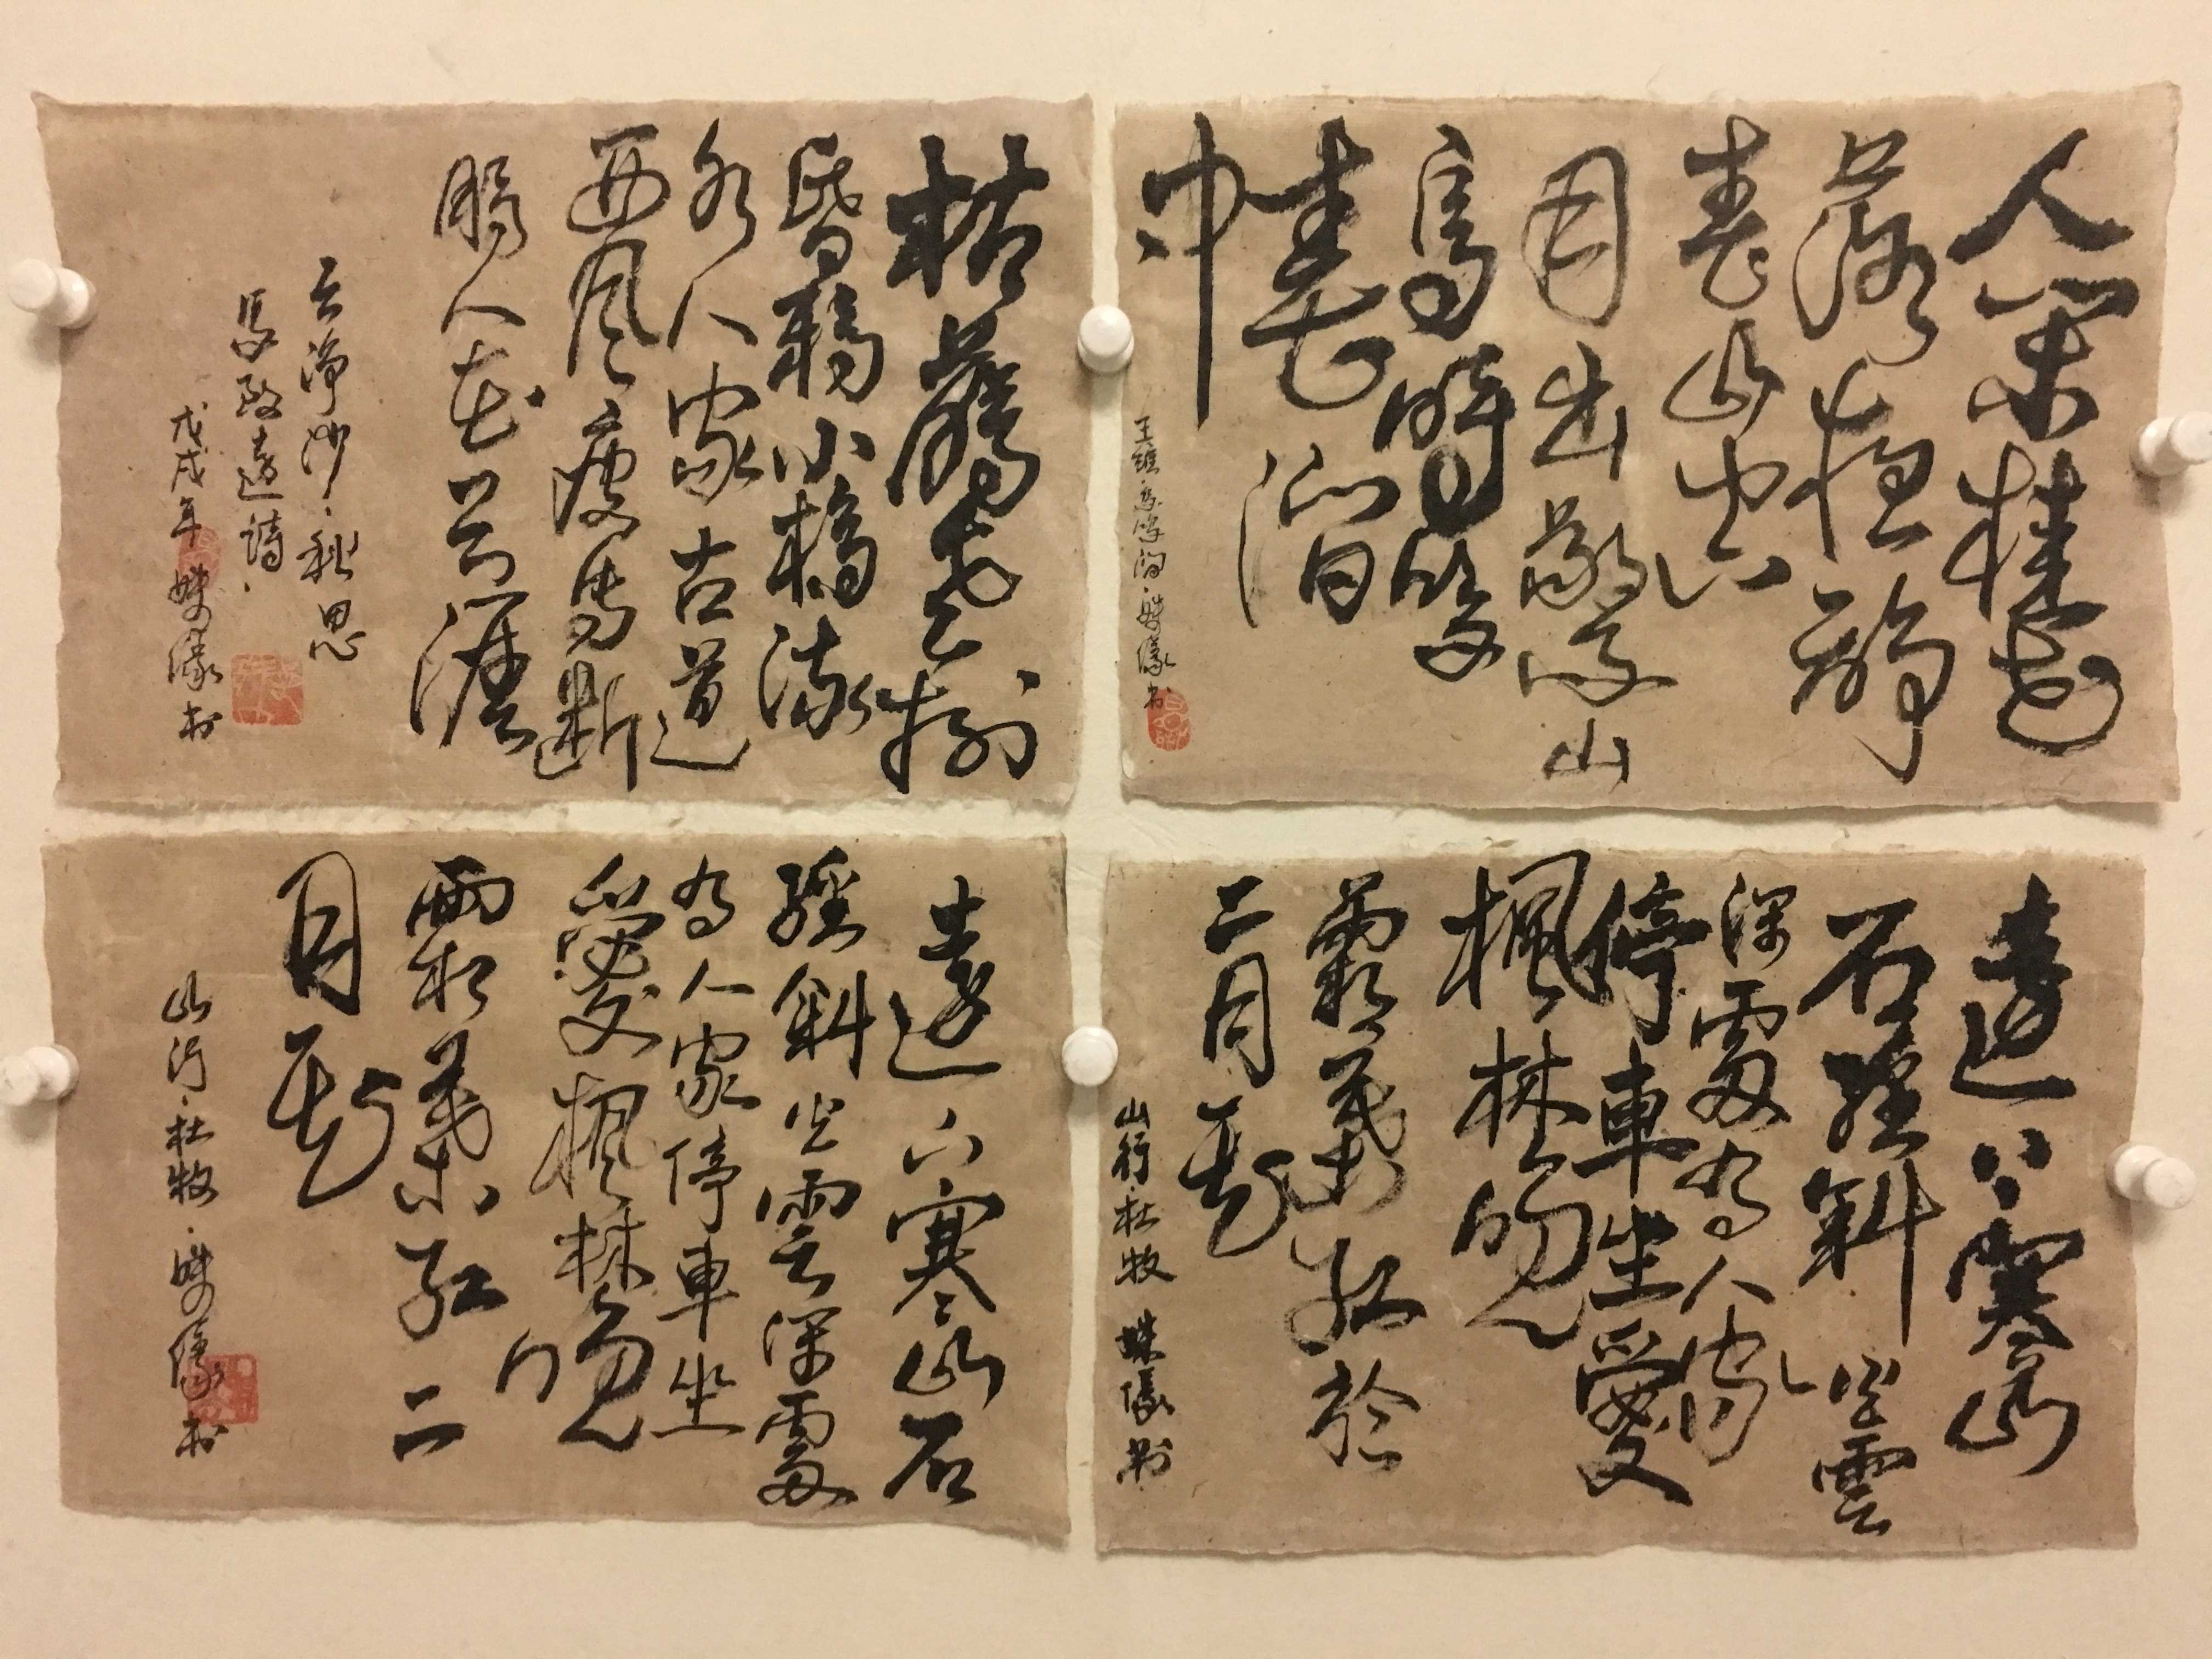 人閒桂花
落夜靜
春山空
月出驚山
鳥時鳴
春澗
中
王維·鳥鳴澗·姝书
枯藤老樹
昏鴉小橋流
水人家古道
西风瘦馬斷
腸人在天涯
天净沙·秋思
馬致遠詩·
戊戌年 姝书
遠上寒山
石徑斜白雲
深處有人家
停車坐愛
楓林晚
霜葉紅於
二月花
山行杜牧 姝书
遠上寒山石
徑斜白雲深處
有人家停車坐
愛楓林晚
霜葉紅二
月花
山行·杜牧·姝书